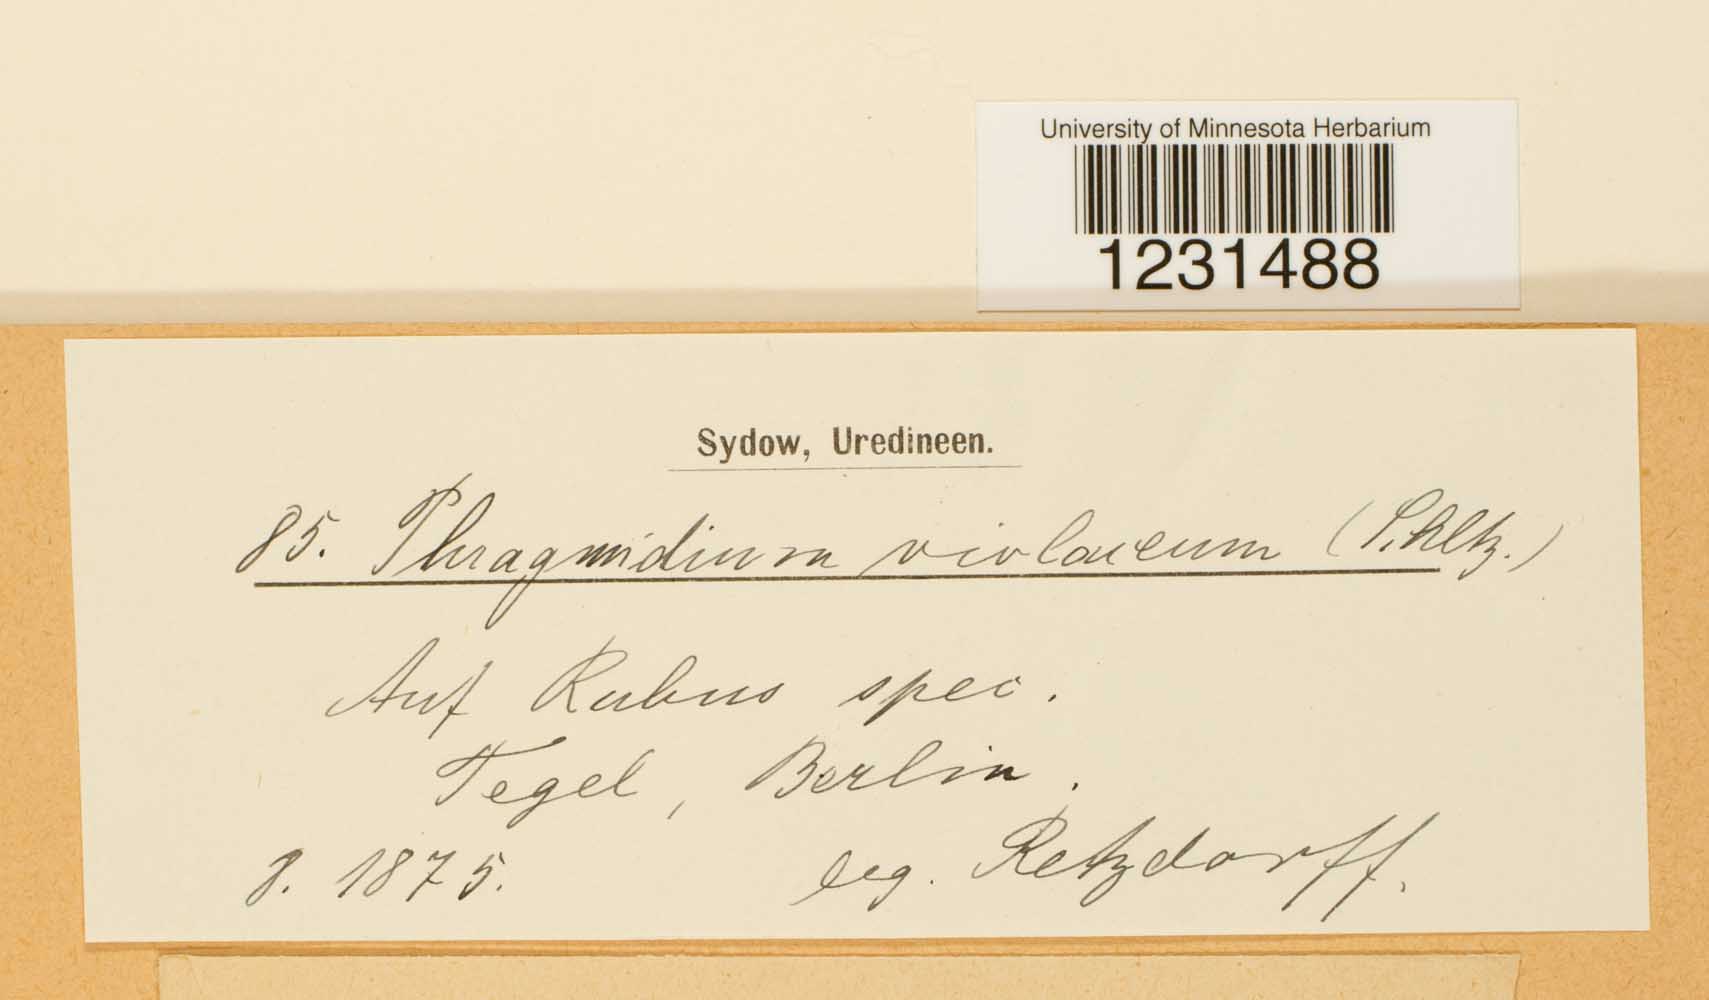 University of Minnesota Herbarium
1231488
Sydow, Uredineen.
85. Phragmidium violaceum (Schltz.)
Auf Rubus spec.
Tegel, Berlin.
8. 1875. leg. Retzdorff.